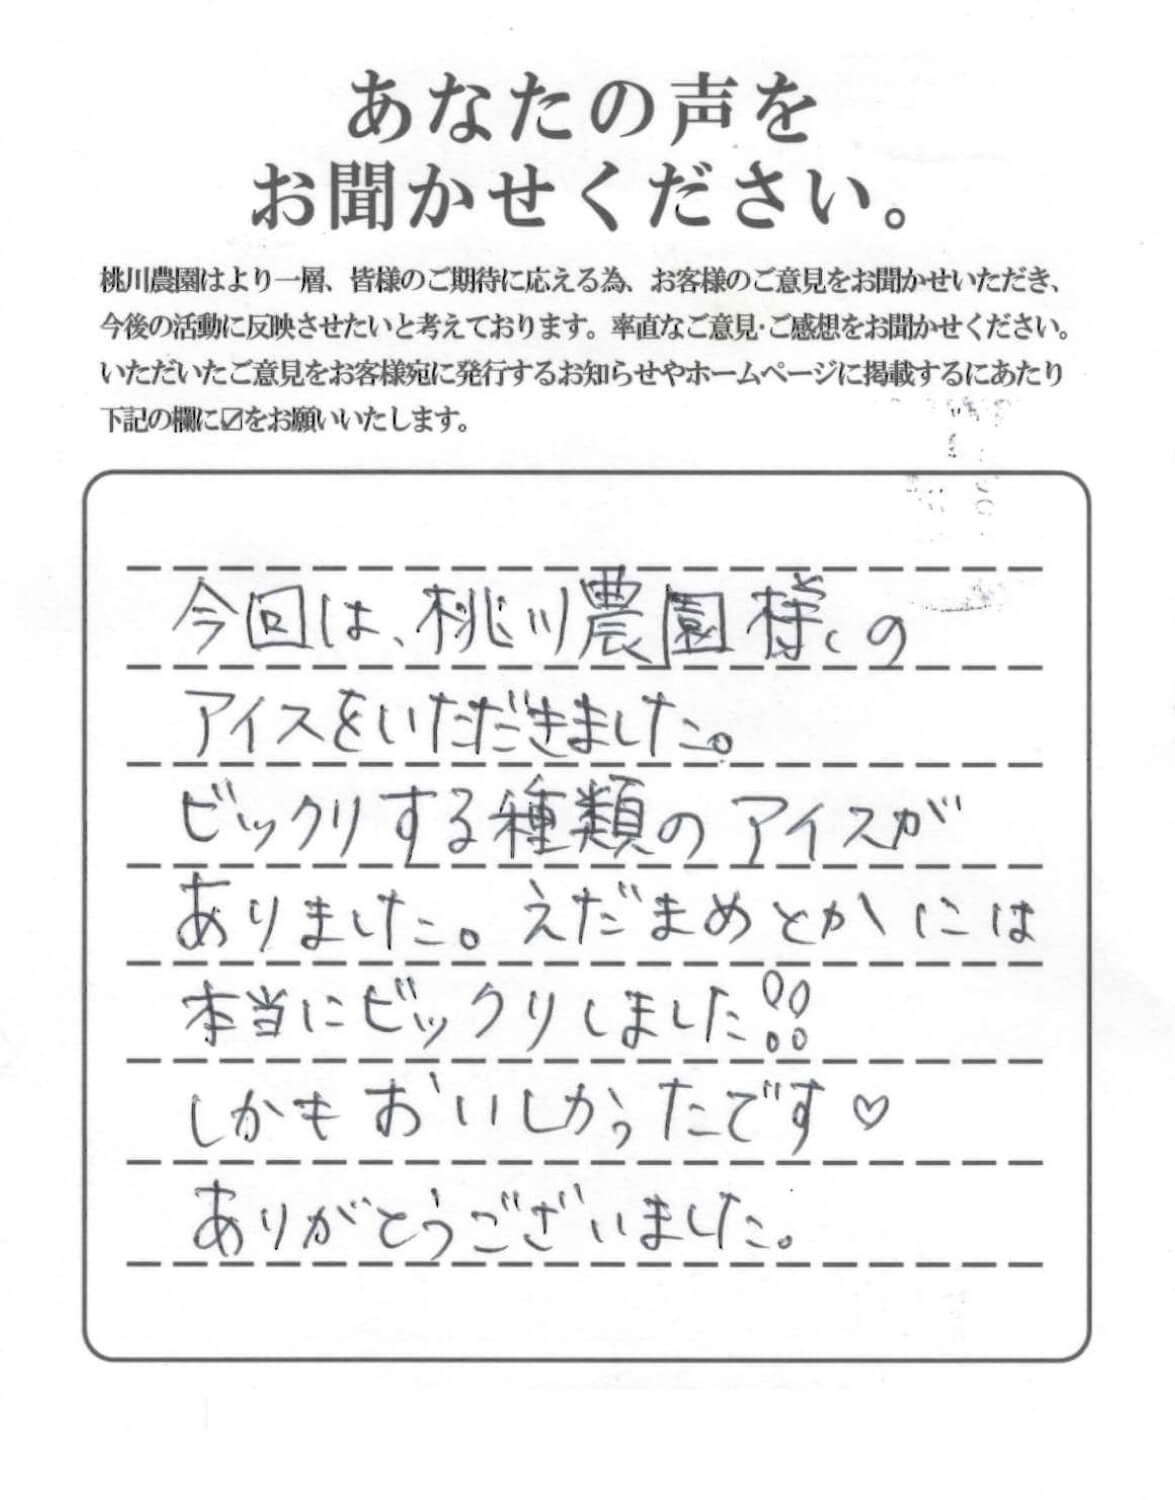 あなたの声を
お聞かせください。
桃川農園はより一層、皆様のご期待に応える為、お客様のご意見をお聞かせいただき、
今後の活動に反映させたいと考えております。率直なご意見・ご感想をお聞かせください。
いただいたご意見をお客様宛に発行するお知らせやホームページに掲載するにあたり
下記の欄に☑をお願いいたします。
今回は、桃川農園様の
アイスをいただきました。
ビックリする種類のアイスが
ありました。えだまめとかには
本当にビックリしました!!
しかもおいしかったです♡
ありがとうございました。